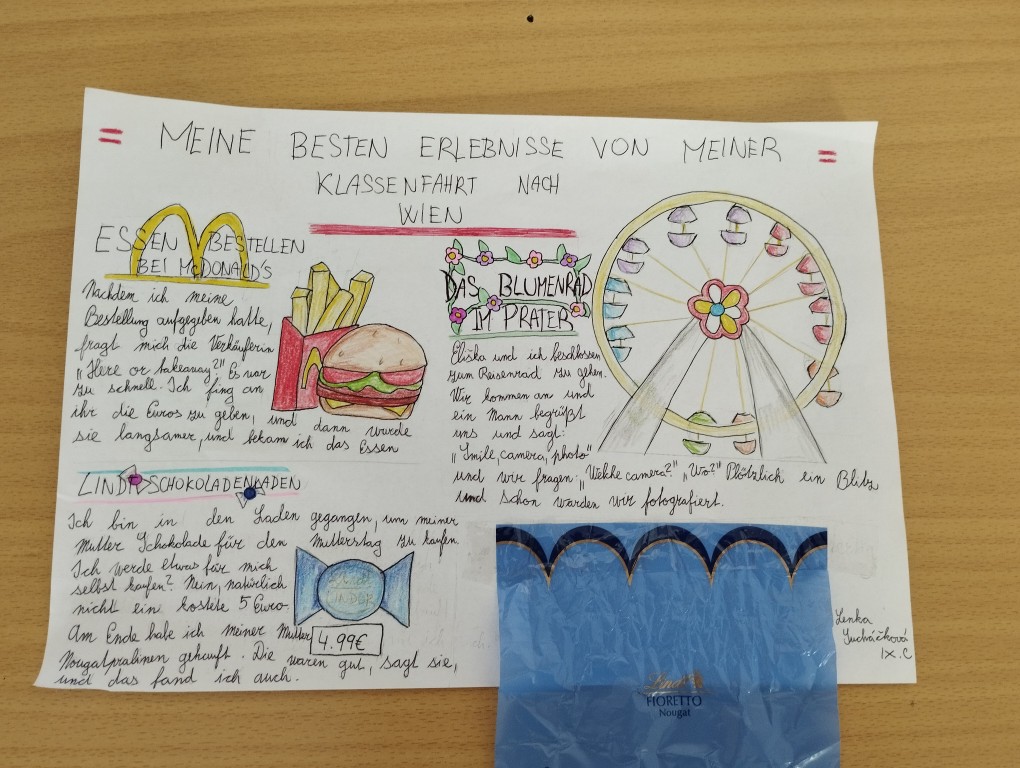 MEINE BESTEN ERLEBNISSE VON MEINER
KLASSENFAHRT NACH
WIEN
ESSEN BESTELLEN
BEI McDONALD'S
Nachdem ich meine
Bestellung aufgegeben hatte,
fragt mich die Verkäuferin
„Here or takeaway?" Es war
zu schnell. Ich fing an
ihr die Euros zu geben, und dann wurde
sie langsamer, und bekam ich das Essen
DAS BLUMENRAD
IM PRATER
Eliška und ich beschlossen
zum Reisenrad zu gehen.
Wir kommen an und
ein Mann begrüßt
uns und sagt:
„Smile, camera, photo"
und wir fragen: „Welche camera?", „Wo?" Plötzlich ein Blitz
und schon warden wir fotografiert.
LINDT SCHOKOLADENLADEN
Ich bin in den Laden gegangen, um meiner
Mutter Schokolade für den Mutterstag zu kaufen.
Ich werde etwas für mich
selbst kaufen? Nein, natürlich
nicht ein kostete 5 Euro.
Am Ende habe ich meiner Mutter
Nougatpralinen gekauft. Die waren gut, sagt sie,
und das fand ich auch.
Lindt
LINDOR
4.99€
Lindt
FIORETTO
Nougat
Lenka
Sucháčková
IX.C